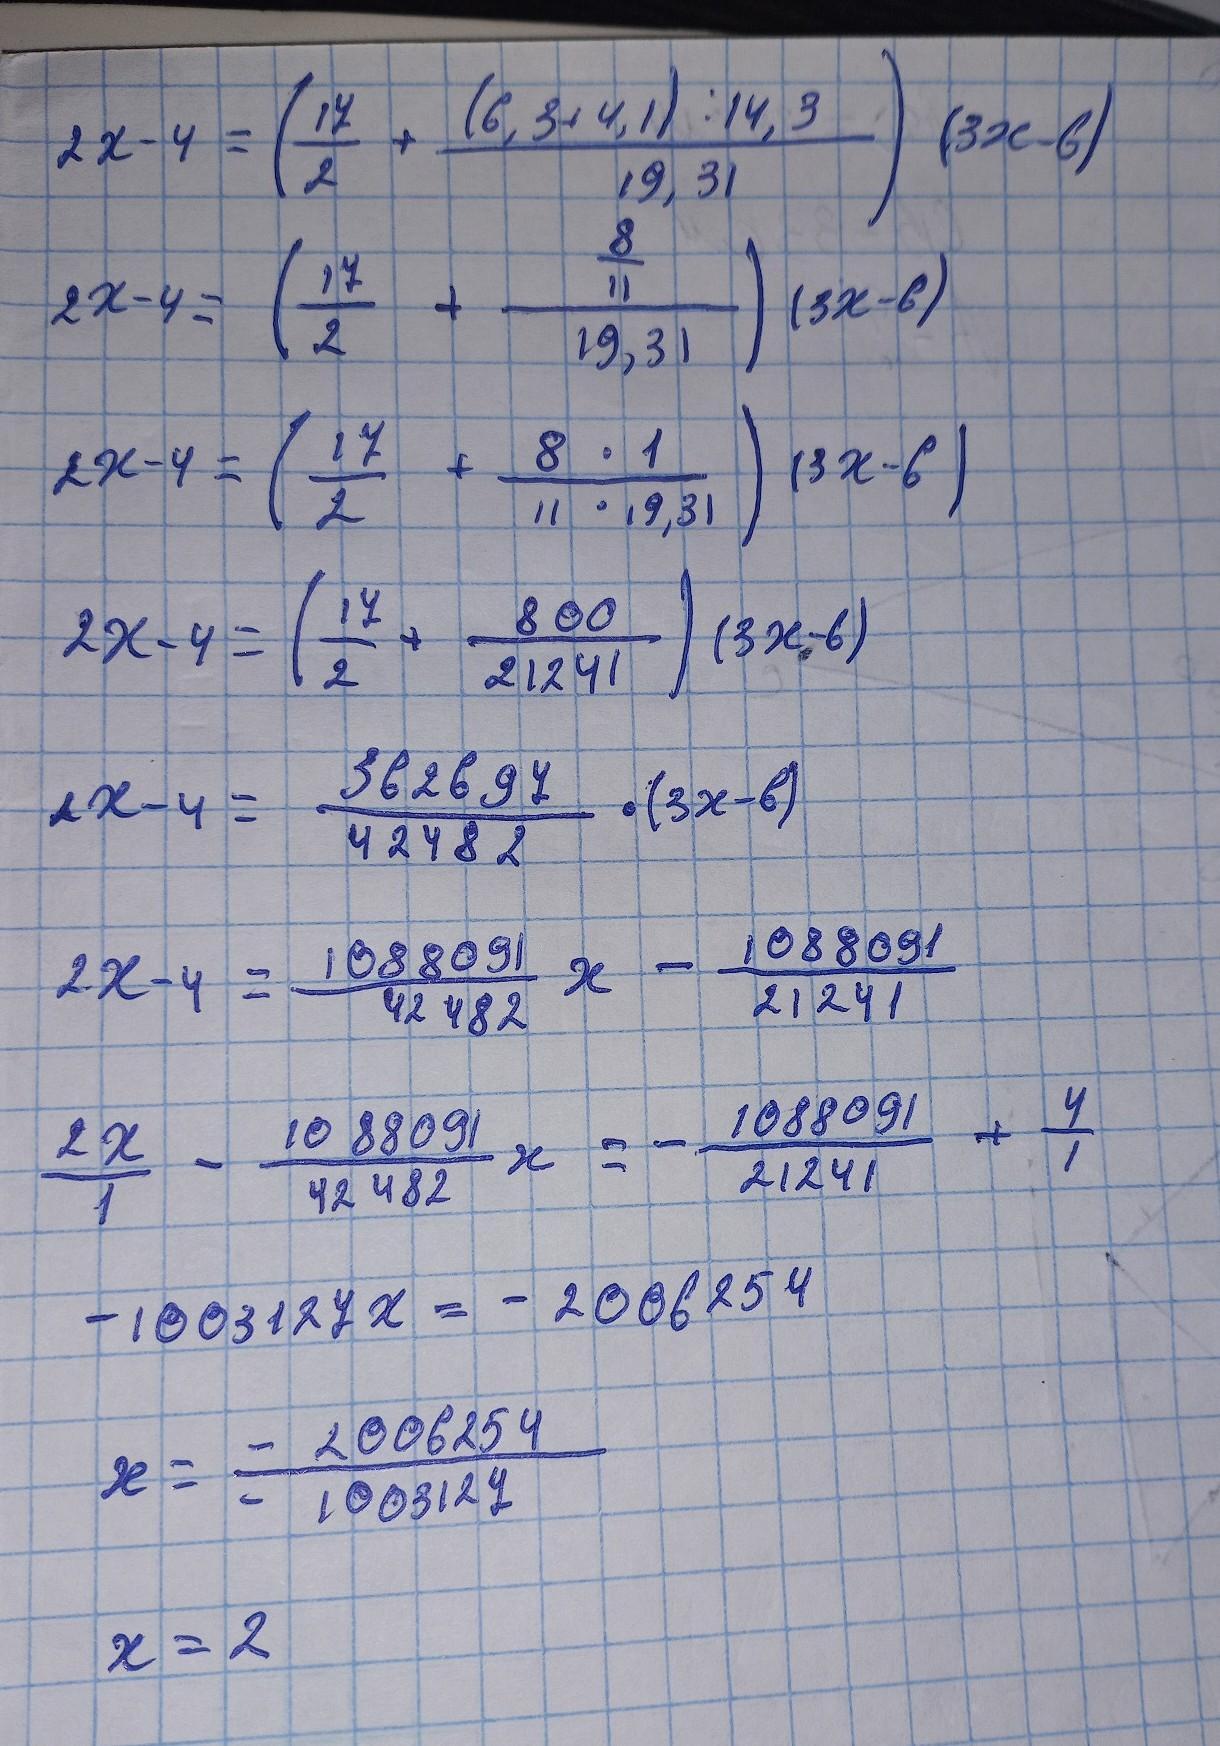 2x-4 = (17/2 + (6,3+4,1):14,3/19,31) (3x-6)
2x-4 = (17/2 + 8/11/19,31) (3x-6)
2x-4 = (17/2 + 8 · 1/11 · 19,31) (3x-6)
2x-4 = (17/2 + 800/21241) (3x-6)
2x-4 = 362697/42482 · (3x-6)
2x-4 = 1088091/42482 x - 1088091/21241
2x/1 - 1088091/42482 x = - 1088091/21241 + 4/1
-1003127x = - 2006254
x = - 2006254/- 1003127
x = 2